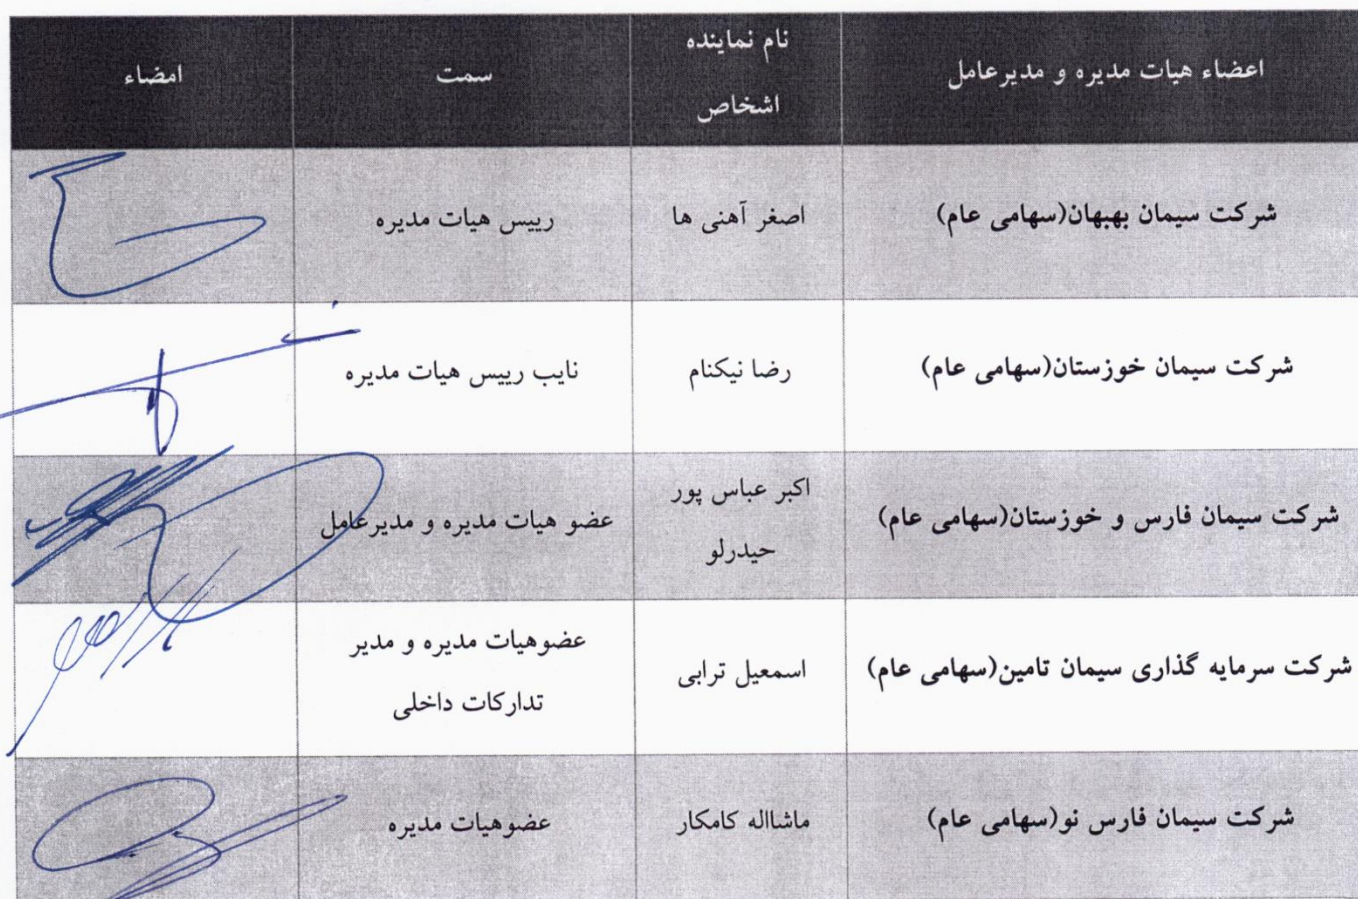 اعضاء هیات مدیره و مدیرعامل
نام نماینده
اشخاص
سمت
امضاء
شرکت سیمان بهبهان(سهامی عام)
اصغر آهنی ها
رییس هیات مدیره
شرکت سیمان خوزستان(سهامی عام)
رضا نیکنام
نایب رییس هیات مدیره
شرکت سیمان فارس و خوزستان(سهامی عام)
اکبر عباس پور
حیدرلو
عضو هیات مدیره و مدیرعامل
شرکت سرمایه گذاری سیمان تامین(سهامی عام)
اسمعیل ترابی
عضوهیات مدیره و مدیر
تدارکات داخلی
شرکت سیمان فارس نو(سهامی عام)
ماشااله کامکار
عضوهیات مدیره